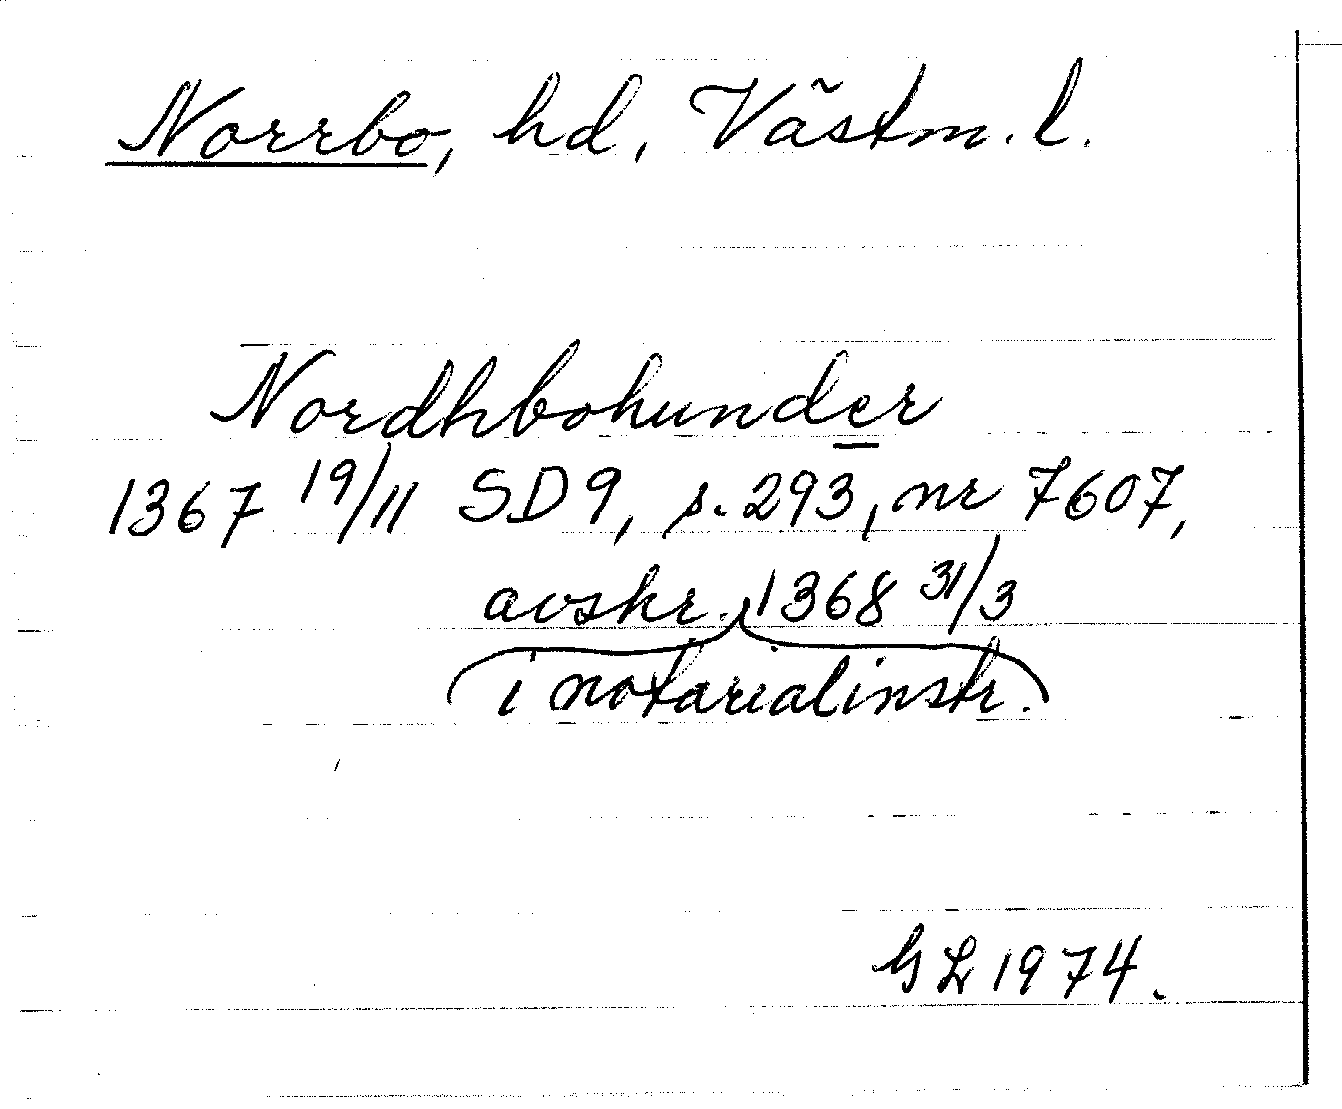 Norrbo, hd, Västm. l.
Nordhbohunder
1367 19/11 SD 9, s. 293, nr 7607,
avskr. 1368 31/3
i notarialinstr.
GL 1974.